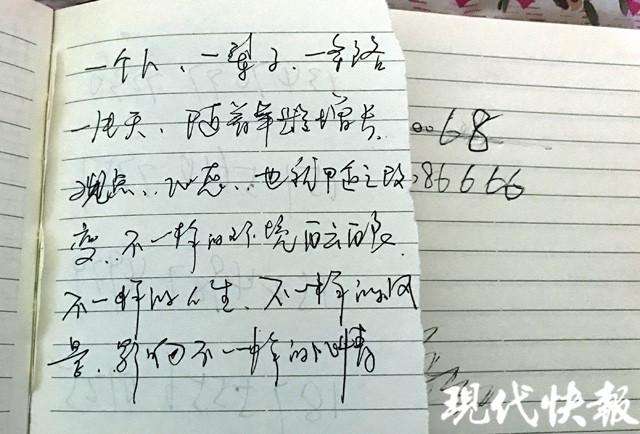 一个人、一辈子、一条路
一片天、随着年龄增长
观点、心态、也 之改
变、不一样的环境
不一样的人生、不一样的风
景、影响不一样的心情
68
86666
现代快报